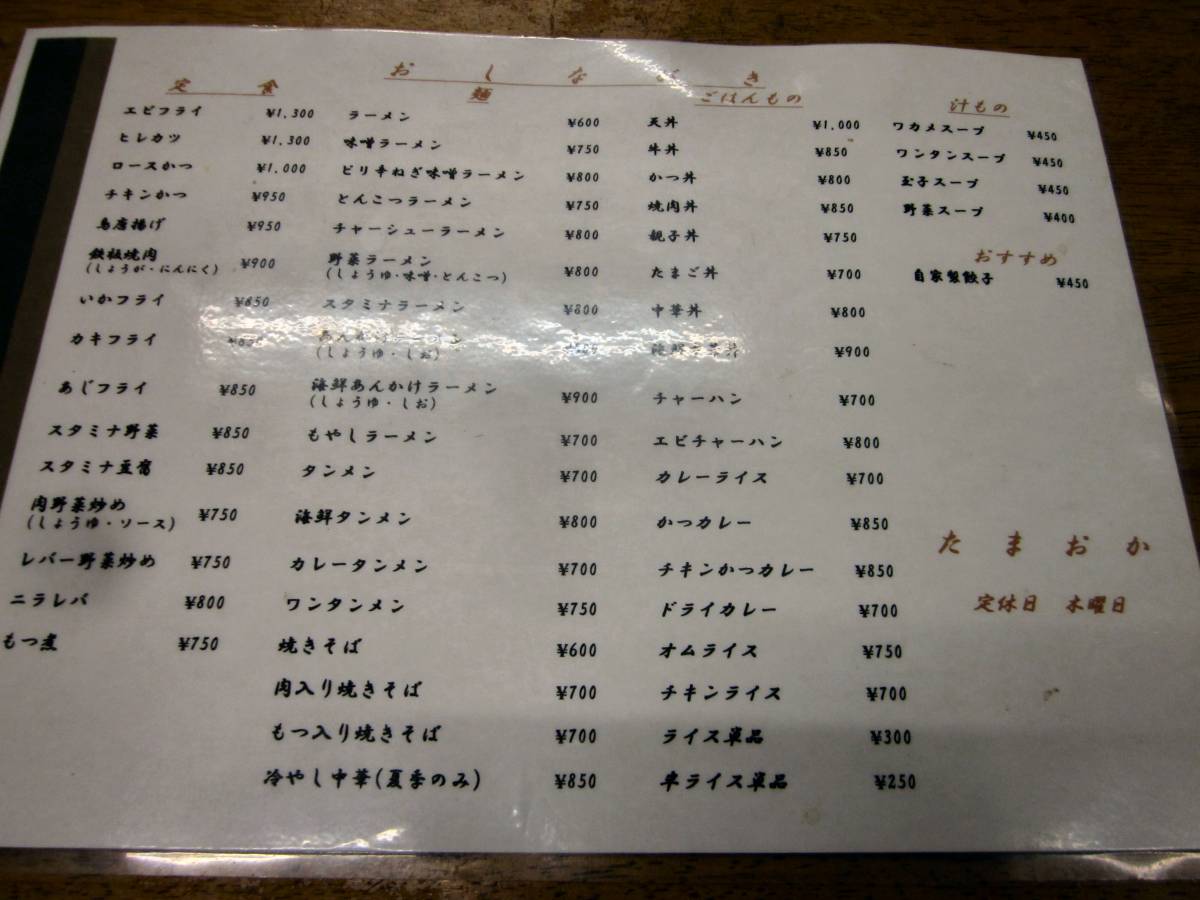 おしながき
定食
エビフライ ¥1,300
ヒレカツ ¥1,300
ロースかつ ¥1,000
チキンかつ ¥950
鳥唐揚げ ¥950
鉄板焼肉 ¥900
(しょうが・にんにく)
いかフライ ¥850
カキフライ
あじフライ ¥850
スタミナ野菜 ¥850
スタミナ豆腐 ¥850
肉野菜炒め ¥750
(しょうゆ・ソース)
レバー野菜炒め ¥750
ニラレバ ¥800
もつ煮 ¥750
麺
ラーメン ¥600
味噌ラーメン ¥750
ピリ辛ねぎ味噌ラーメン ¥800
とんこつラーメン ¥750
チャーシューラーメン ¥800
野菜ラーメン ¥800
(しょうゆ・味噌・とんこつ)
スタミナラーメン ¥800
あんかけラーメン
(しょうゆ・しお)
海鮮あんかけラーメン ¥900
(しょうゆ・しお)
もやしラーメン ¥700
タンメン ¥700
海鮮タンメン ¥800
カレータンメン ¥700
ワンタンメン ¥750
焼きそば ¥600
肉入り焼きそば ¥700
もつ入り焼きそば ¥700
冷やし中華(夏季のみ) ¥850
ごはんもの
天丼 ¥1,000
牛丼 ¥850
かつ丼 ¥800
焼肉丼 ¥850
親子丼 ¥750
たまご丼 ¥700
中華丼 ¥800
海鮮中華丼 ¥900
チャーハン ¥700
エビチャーハン ¥800
カレーライス ¥700
かつカレー ¥850
チキンかつカレー ¥850
ドライカレー ¥700
オムライス ¥750
チキンライス ¥700
ライス単品 ¥300
半ライス単品 ¥250
汁もの
ワカメスープ ¥450
ワンタンスープ ¥450
玉子スープ ¥450
野菜スープ ¥400
おすすめ
自家製餃子 ¥450
たまおか
定休日 木曜日